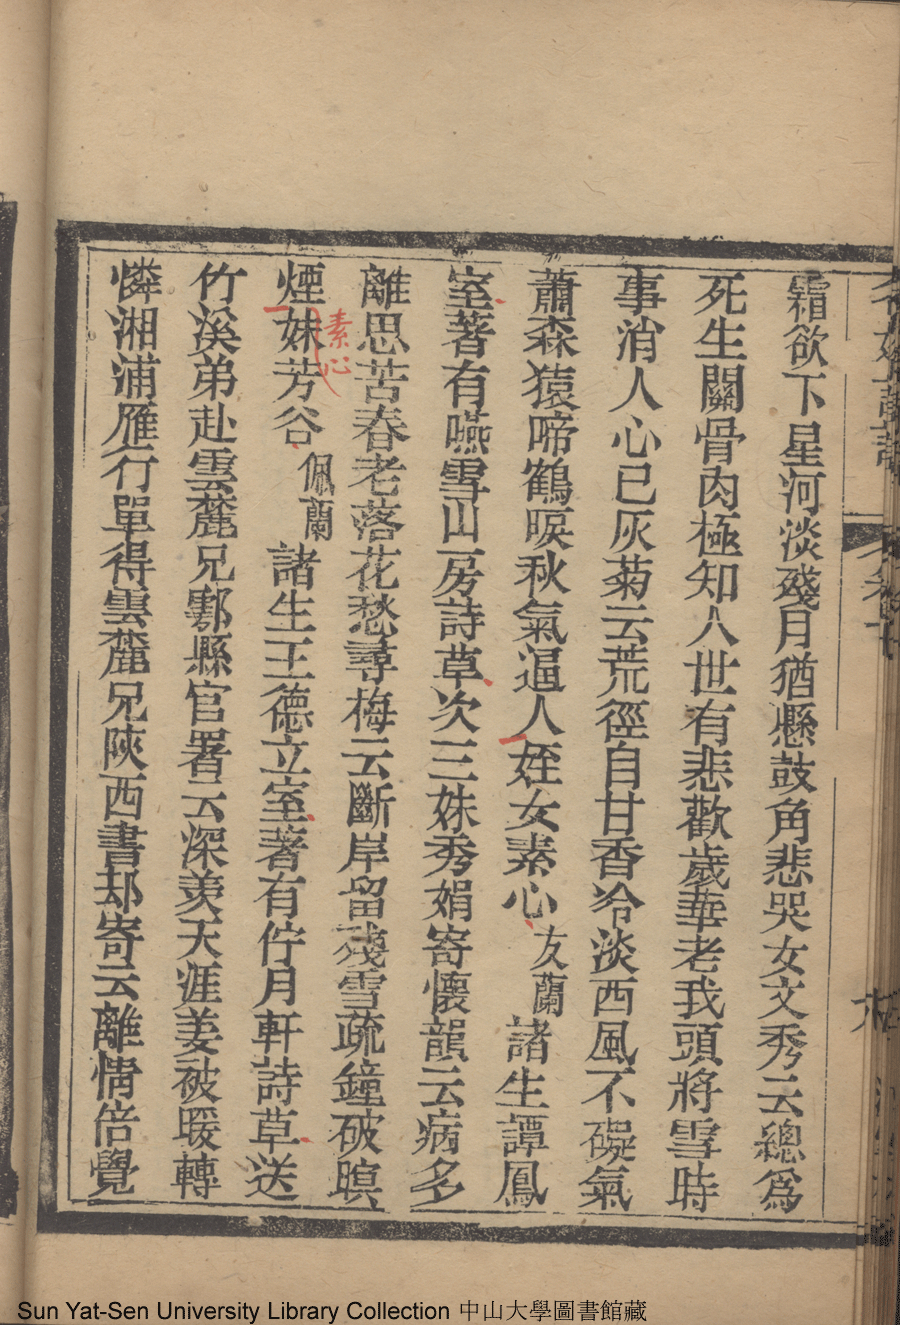 霜欲下星河淡殘月猶懸鼓角悲哭女文秀云總爲
死生關骨肉極知人世有悲歡歲華老我頭將雪時
事消人心已灰菊云荒徑自甘香冷淡西風不礙氣
蕭森猿啼鶴唳秋氣逼人姪女素心友蘭諸生譚鳳
室著有嚥雪山房詩草次三妹秀娟寄懷韻云病多
離思苦春老落花愁尋梅云斷岸留殘雪疏鐘破暝
煙妹芳谷佩蘭諸生王德立室著有佇月軒詩草送
素心
竹溪弟赴雲麓兄酃縣官署云深羨天涯姜被暖轉
憐湘浦雁行單得雲麓兄陝西書却寄云離情倍覺
Sun Yat-Sen University Library Collection 中山大學圖書館藏